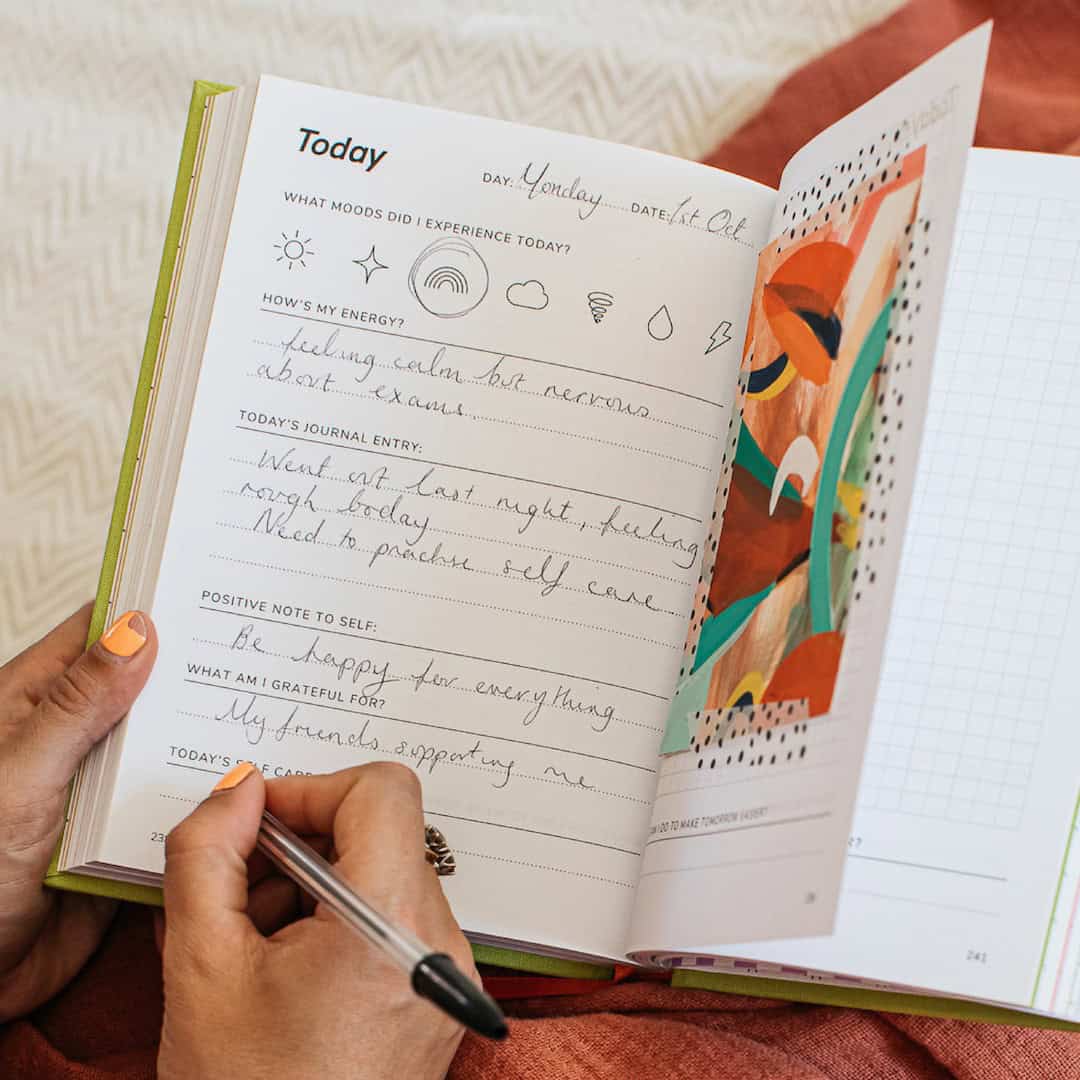 Today
DAY: Monday DATE: 1st Oct
WHAT MOODS DID I EXPERIENCE TODAY?
HOW'S MY ENERGY?
feeling calm but nervous
about exams
TODAY'S JOURNAL ENTRY:
Went out last night, feeling
rough today
Need to practise self care
POSITIVE NOTE TO SELF:
Be happy for everything
WHAT AM I GRATEFUL FOR?
My friends supporting me
TODAY'S SELF CARE
I DO TO MAKE TOMORROW EASIER?
?
241